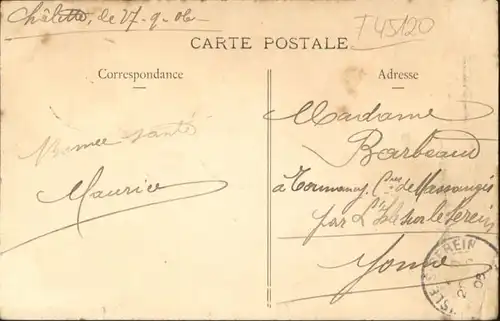 Châlette, de 27-9-06
F 45120
CARTE POSTALE
Correspondance
Adresse
Bonne santé
Maurice
Madame
Barbeaud
à Tormancy, Cne de Massangis
par L'Isle sur le Serein
Yonne
ISLE S SEREIN